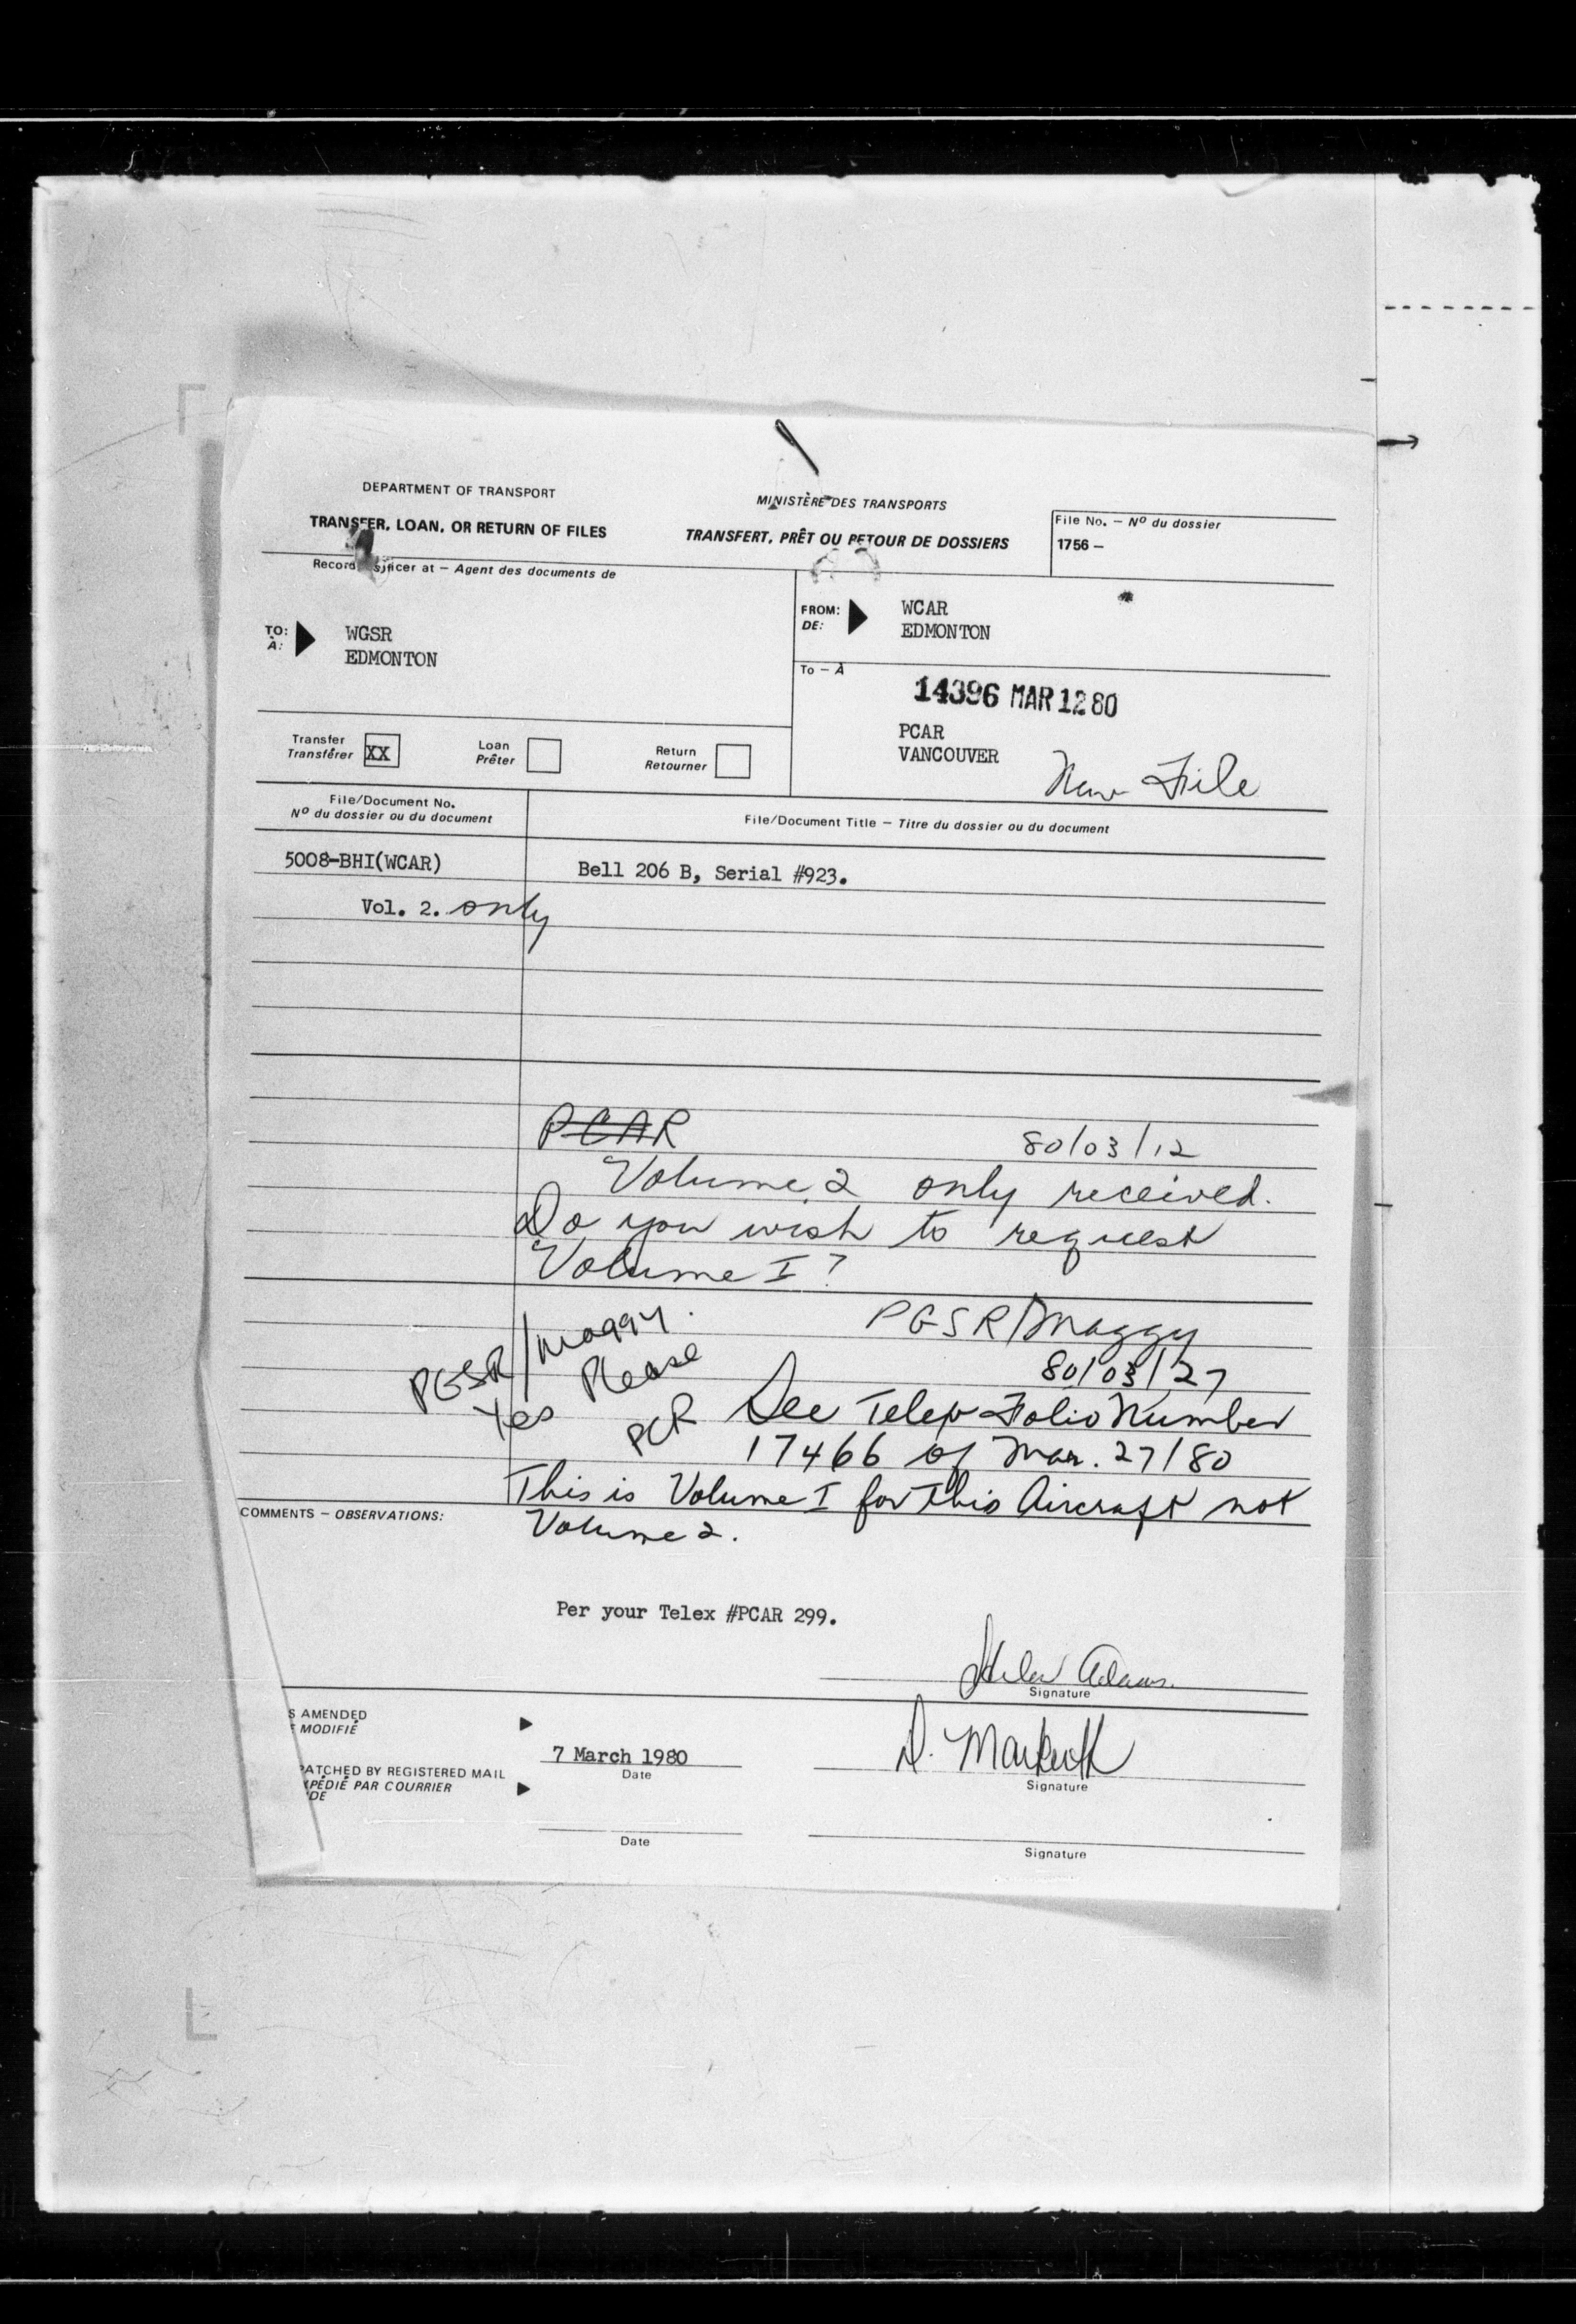 DEPARTMENT OF TRANSPORT
MINISTÈRE DES TRANSPORTS
TRANSFER, LOAN, OR RETURN OF FILES
TRANSFERT, PRÊT OU RETOUR DE DOSSIERS
File No. — Nº du dossier
1756 —
Record officer at — Agent des documents de
TO:
À:
WGSR
EDMONTON
FROM:
DE:
WCAR
EDMONTON
To — À
14396 MAR 12 80
PCAR
VANCOUVER
New File
Transfer
Transférer XX
Loan
Prêter
Return
Retourner
File/Document No.
Nº du dossier ou du document
File/Document Title — Titre du dossier ou du document
5008-BHI(WCAR)
Bell 206 B, Serial #923.
Vol. 2. only
PCAR
80/03/12
Volume 2 only received.
Do you wish to request
Volume I?
PGSR/Maggy
PGSR/Maggy.
Yes Please
PCR
80/03/27
See Telex Folio Number
17466 of Mar. 27/80
This is Volume I for this Aircraft not
Volume 2.
COMMENTS — OBSERVATIONS:
Per your Telex #PCAR 299.
Adams
Signature
S AMENDED
MODIFIÉ
7 March 1980
Date
D.
Signature
PATCHED BY REGISTERED MAIL
PÉDIÉ PAR COURRIER
DE
Date
Signature